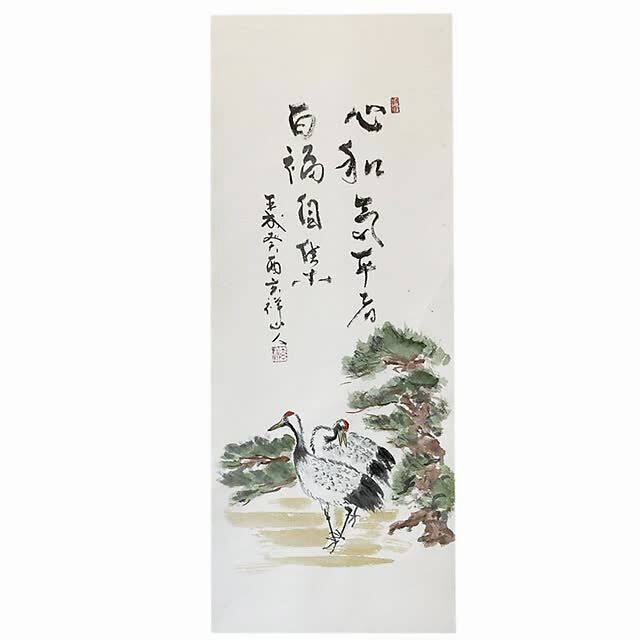 心和氣平者
百福自集
癸酉 祥山人